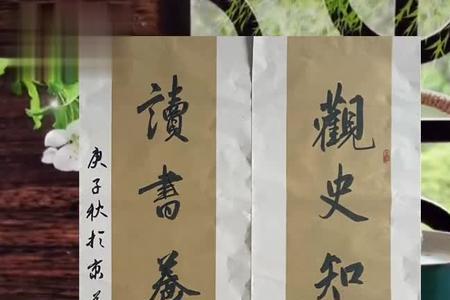 觀史知
讀書養
庚子秋於京